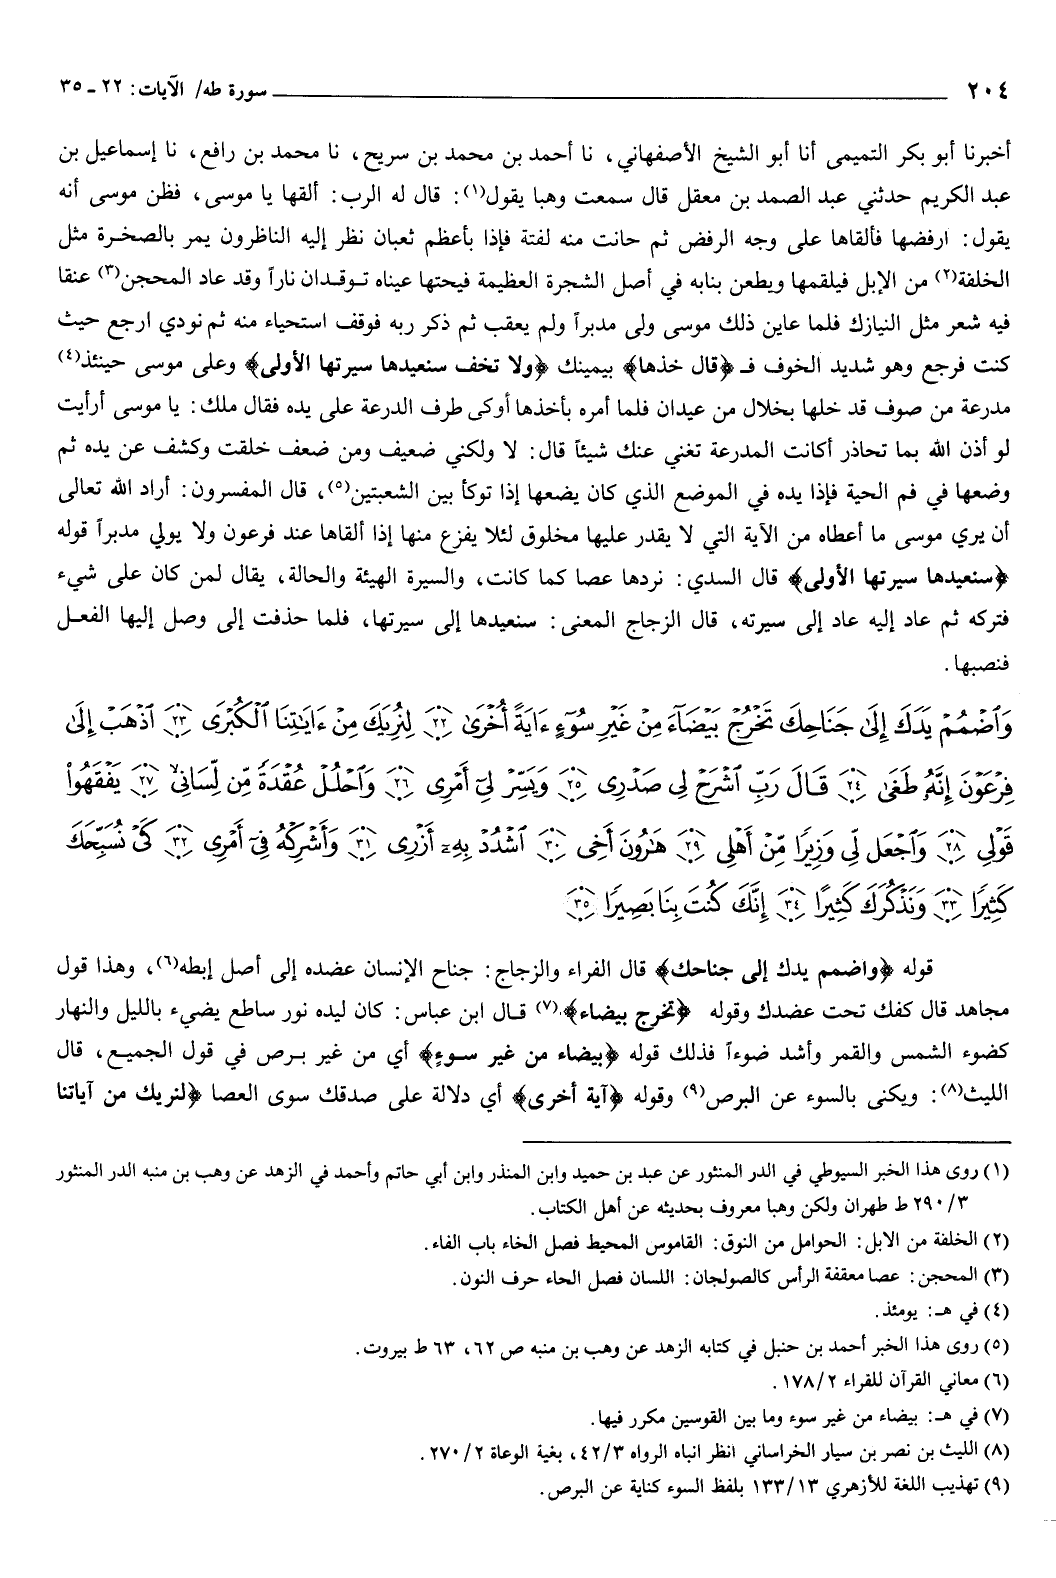 ٢٠٤ سورة طه/ الآيات: ٢٢ ـ ٣٥
أخبرنا أبو بكر التميمى أنا أبو الشيخ الأصفهاني، نا أحمد بن محمد بن سريح، نا محمد بن رافع، نا إسماعيل بن
عبد الكريم حدثني عبد الصمد بن معقل قال سمعت وهبا يقول(١): قال له الرب: ألقها يا موسى، فظن موسى أنه
يقول: ارفضها فألقاها على وجه الرفض ثم حانت منه لفتة فإذا بأعظم ثعبان نظر إليه الناظرون يمر بالصخرة مثل
الخلفة(٢) من الإبل فيلقمها ويطعن بنابه في أصل الشجرة العظيمة فيحتها عيناه تـوقـدان ناراً وقد عاد المحجن(٣) عنقا
فيه شعر مثل النيازك فلما عاين ذلك موسى ولى مدبراً ولم يعقب ثم ذكر ربه فوقف استحياء منه ثم نودي ارجع حيث
كنت فرجع وهو شديد الخوف فـ ﴿قال خذها﴾ بيمينك ﴿ولا تخف سنعيدها سيرتها الأولى﴾ وعلى موسى حينئذ(٤)
مدرعة من صوف قد خلها بخلال من عيدان فلما أمره بأخذها أوكى طرف الدرعة على يده فقال ملك: يا موسى أرأيت
لو أذن الله بما تحاذر أكانت المدرعة تغني عنك شيئاً قال: لا ولكني ضعيف ومن ضعف خلقت وكشف عن يده ثم
وضعها في فم الحية فإذا يده في الموضع الذي كان يضعها إذا توكأ بين الشعبتين(٥)، قال المفسرون: أراد الله تعالى
أن يري موسى ما أعطاه من الآية التي لا يقدر عليها مخلوق لئلا يفزع منها إذا ألقاها عند فرعون ولا يولي مدبراً قوله
﴿سنعيدها سيرتها الأولى﴾ قال السدي: نردها عصا كما كانت، والسيرة الهيئة والحالة، يقال لمن كان على شيء
فتركه ثم عاد إليه عاد إلى سيرته، قال الزجاج المعنى: سنعيدها إلى سيرتها، فلما حذفت إلى وصل إليها الفعـل
فنصبها.
وَٱضْمُمْ يَدَكَ إِلَىٰ جَنَاحِكَ تَخْرُجْ بَيْضَآءَ مِنْ غَيْرِ سُوٓءٍ ءَايَةً أُخْرَىٰ ٢٢ لِنُرِيَكَ مِنْ ءَايَٰتِنَا ٱلْكُبْرَى ٢٣ ٱذْهَبْ إِلَىٰ
فِرْعَوْنَ إِنَّهُۥ طَغَىٰ ٢٤ قَالَ رَبِّ ٱشْرَحْ لِى صَدْرِى ٢٥ وَيَسِّرْ لِىٓ أَمْرِى ٢٦ وَٱحْلُلْ عُقْدَةً مِّن لِّسَانِى ٢٧ يَفْقَهُوا۟
قَوْلِى ٢٨ وَٱجْعَل لِّى وَزِيرًا مِّنْ أَهْلِى ٢٩ هَٰرُونَ أَخِى ٣٠ ٱشْدُدْ بِهِۦٓ أَزْرِى ٣١ وَأَشْرِكْهُ فِىٓ أَمْرِى ٣٢ كَىْ نُسَبِّحَكَ
كَثِيرًا ٣٣ وَنَذْكُرَكَ كَثِيرًا ٣٤ إِنَّكَ كُنتَ بِنَا بَصِيرًا ٣٥
قوله ﴿واضمم يدك إلى جناحك﴾ قال الفراء والزجاج: جناح الإنسان عضده إلى أصل إبطه(٦)، وهذا قول
مجاهد قال كفك تحت عضدك وقوله ﴿تخرج بيضاء﴾(٧) قـال ابن عباس: كان ليده نور ساطع يضيء بالليل والنهار
كضوء الشمس والقمر وأشد ضوءاً فذلك قوله ﴿بيضاء من غير سـوءٍ﴾ أي من غير بـرص في قول الجميـع، قال
الليث(٨): ويكنى بالسوء عن البرص(٩) وقوله ﴿آية أخرى﴾ أي دلالة على صدقك سوى العصا ﴿لنريك من آياتنا
(١) روى هذا الخبر السيوطي في الدر المنثور عن عبد بن حميد وابن المنذر وابن أبي حاتم وأحمد في الزهد عن وهب بن منبه الدر المنثور
٢٩٠/٣ ط طهران ولكن وهبا معروف بحديثه عن أهل الكتاب.
(٢) الخلفة من الابل: الحوامل من النوق: القاموس المحيط فصل الخاء باب الفاء.
(٣) المحجن: عصا معقفة الرأس كالصولجان: اللسان فصل الحاء حرف النون.
(٤) في هـ: يومئذ.
(٥) روى هذا الخبر أحمد بن حنبل في كتابه الزهد عن وهب بن منبه ص ٦٢، ٦٣ ط بيروت.
(٦) معاني القرآن للفراء ١٧٨/٢.
(٧) في هـ: بيضاء من غير سوء وما بين القوسين مكرر فيها.
(٨) الليث بن نصر بن سيار الخراساني انظر انباه الرواه ٤٢/٣، بغية الوعاة ٢٧٠/٢.
(٩) تهذيب اللغة للأزهري ١٣٣/١٣ بلفظ السوء كناية عن البرص.